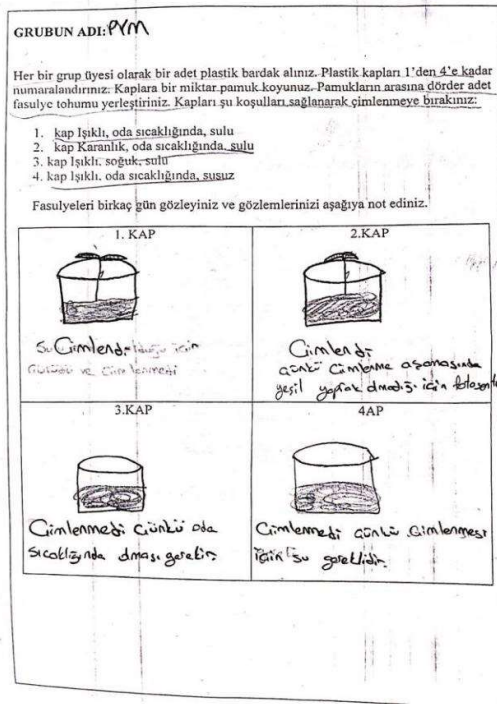 GRUBUN ADI: PYM
Her bir grup üyesi olarak bir adet plastik bardak alınız. Plastik kapları 1'den 4'e kadar
numaralandırınız. Kaplara bir miktar pamuk koyunuz. Pamukların arasına dörder adet
fasulye tohumu yerleştiriniz. Kapları şu koşulları sağlanarak çimlenmeye bırakınız:
1. kap Işıklı, oda sıcaklığında, sulu
2. kap Karanlık, oda sıcaklığında, sulu
3. kap Işıklı, soğuk, sulu
4. kap Işıklı, oda sıcaklığında, susuz
Fasulyeleri birkaç gün gözleyiniz ve gözlemlerinizi aşağıya not ediniz.
1. KAP
Çimlendi
için
ve
2.KAP
Çimlendi
çünkü Çimlenme aşamasında
yeşil yaprak olmadığı için
3.KAP
Çimlenmedi Çünkü oda
sıcaklığında olması gerekir
4AP
Çimlenmedi çünkü Çimlenmesi
için su gereklidir.